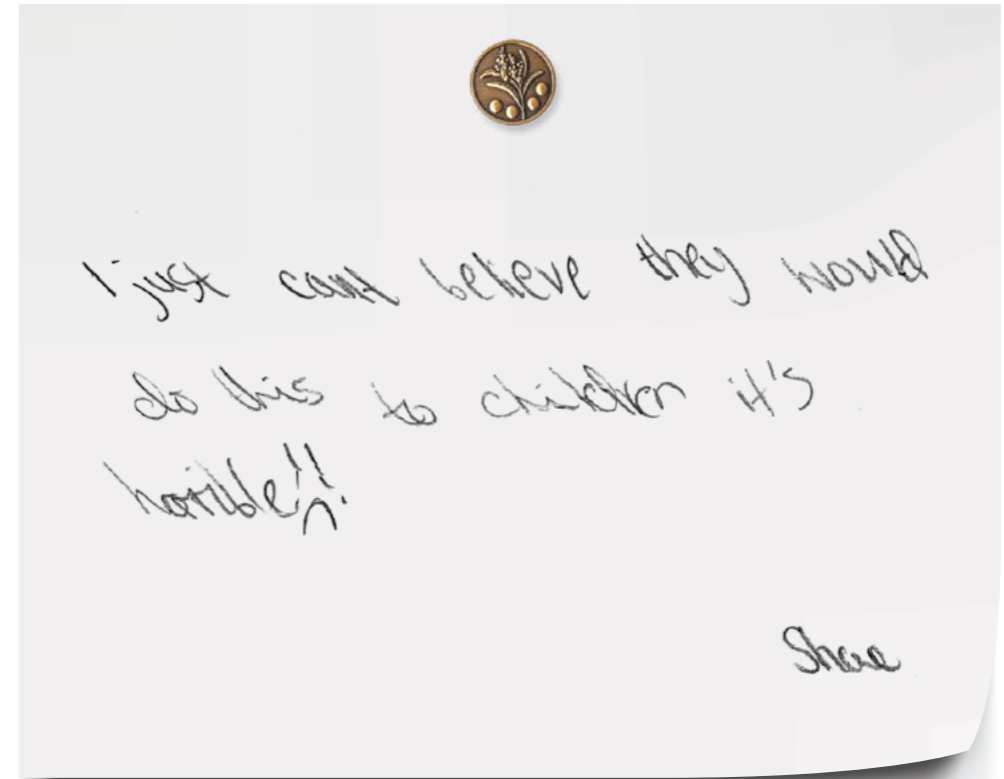 I just cant believe they would
do this to children it's
horrible!!